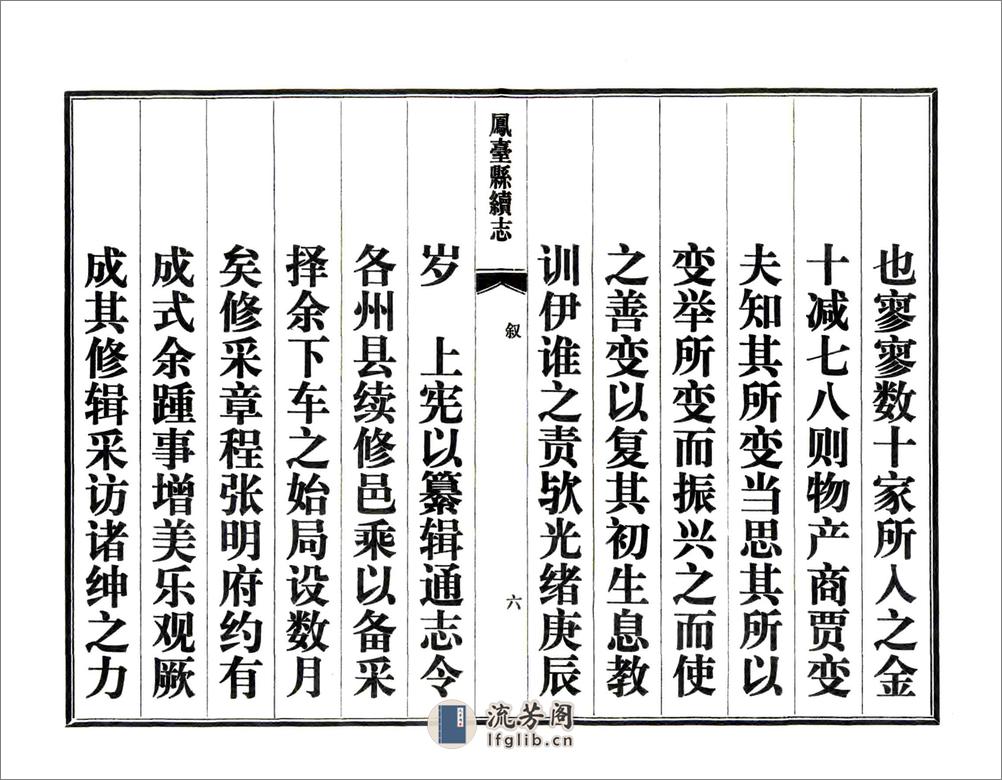 也寥寥数十家所入之金
十减七八则物产商贾变
夫知其所变当思其所以
变举所变而振兴之而使
之善变以复其初生息教
训伊谁之责欤光绪庚辰
鳳臺縣續志
叙
六
岁　上宪以纂辑通志令
各州县续修邑乘以备采
择余下车之始局设数月
矣修采章程张明府约有
成式余踵事增美乐观厥
成其修辑采访诸绅之力
流芳阁
lfglib.cn